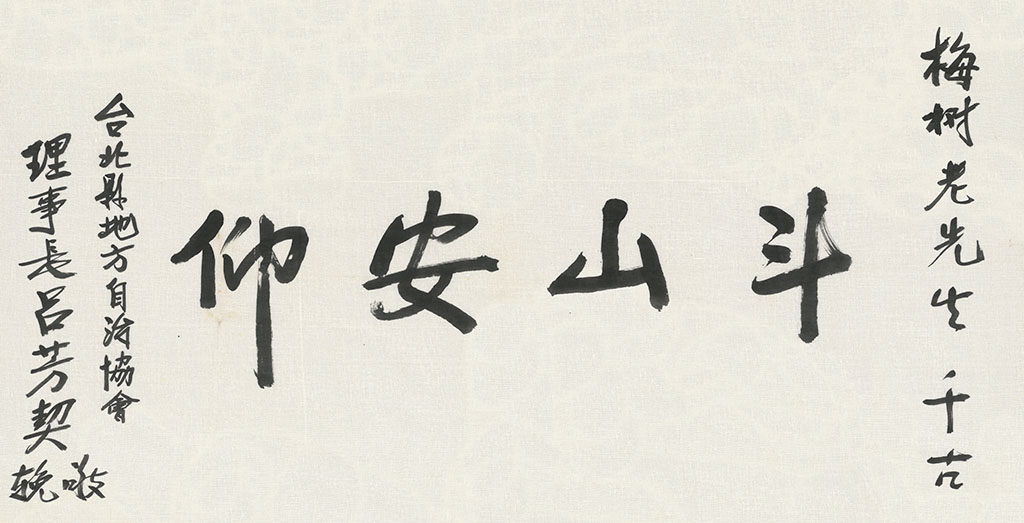 梅树老先生 千古
斗山安仰
台北县地方自治協會
理事長呂芳契
敬輓